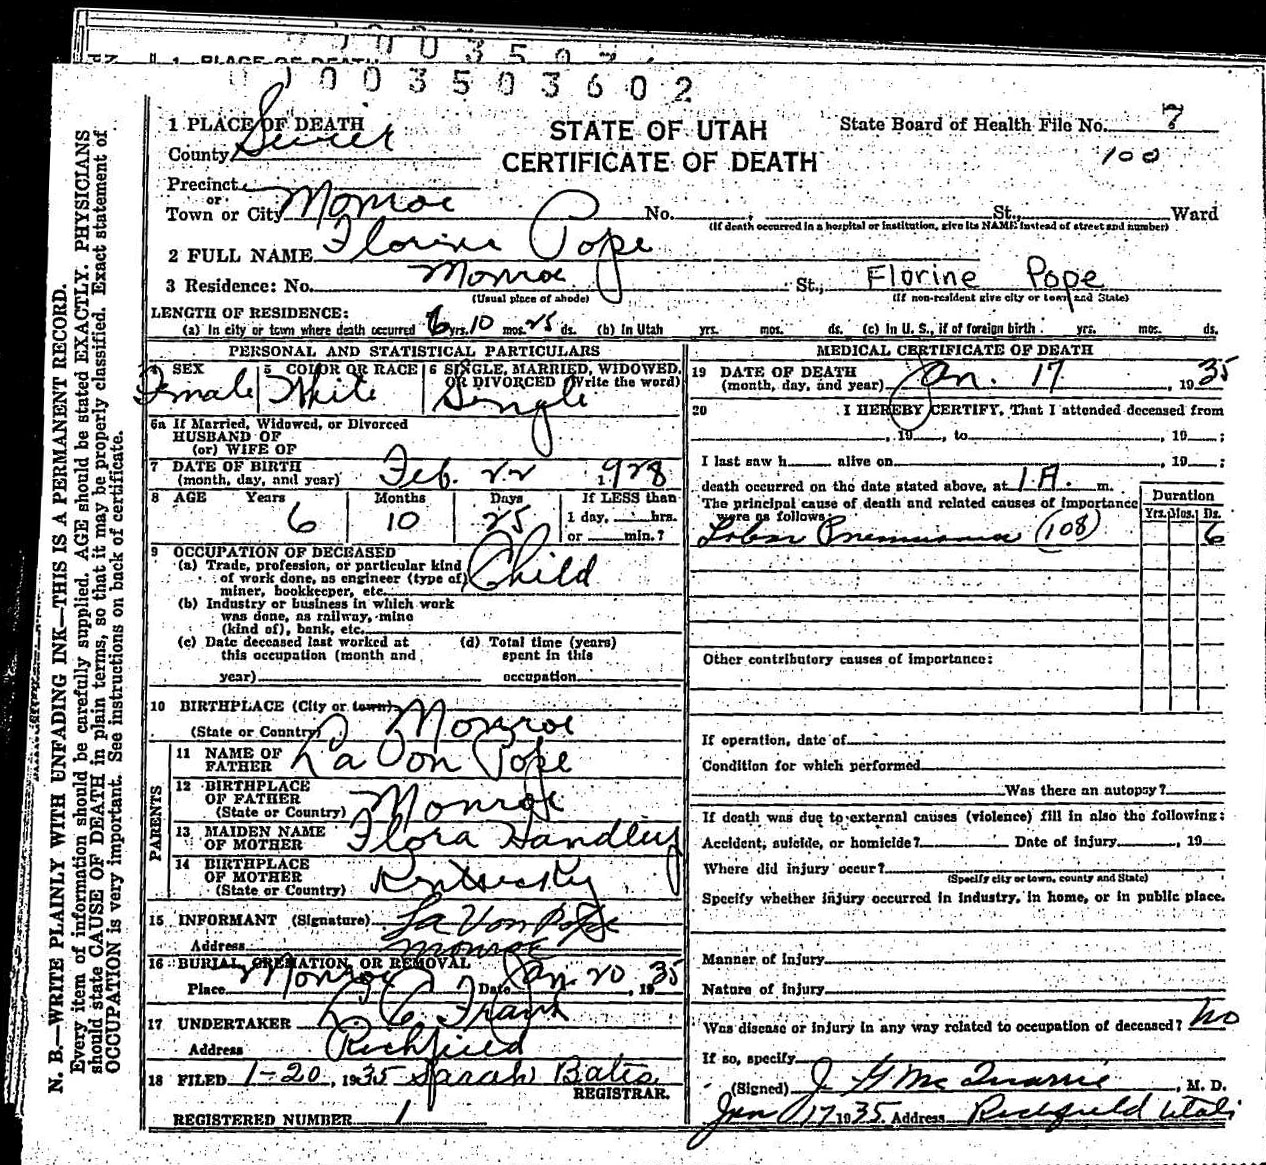 0 1 0 0 3 5 0 3 6 0 2
1 PLACE OF DEATH
STATE OF UTAH
CERTIFICATE OF DEATH
State Board of Health File No. 7
100
County Sevier
Precinct
or
Town or City Monroe No. , St., Ward
(If death occurred in a hospital or institution, give its NAME instead of street and number)
2 FULL NAME Florine Pope
3 Residence: No. Monroe St., Florine Pope
(Usual place of abode) (If non-resident give city or town and State)
LENGTH OF RESIDENCE:
(a) In city or town where death occurred 6 yrs. 10 mos. 25 ds. (b) In Utah yrs. mos. ds. (c) In U. S., if of foreign birth yrs. mos. ds.
PERSONAL AND STATISTICAL PARTICULARS
SEX Female
5 COLOR OR RACE White
6 SINGLE, MARRIED, WIDOWED, OR DIVORCED (Write the word) Single
6a If Married, Widowed, or Divorced
HUSBAND OF
(or) WIFE OF
7 DATE OF BIRTH
(month, day, and year) Feb. 22 1928
8 AGE Years Months Days If LESS than
6 10 25 1 day, hrs.
or min.?
9 OCCUPATION OF DECEASED
(a) Trade, profession, or particular kind
of work done, as engineer (type of)
miner, bookkeeper, etc. Child
(b) Industry or business in which work
was done, as railway, mine
(kind of), bank, etc.
(c) Date deceased last worked at
this occupation (month and
year)
(d) Total time (years)
spent in this
occupation
10 BIRTHPLACE (City or town)
(State or Country) Monroe
PARENTS
11 NAME OF
FATHER La Von Pope
12 BIRTHPLACE
OF FATHER
(State or Country) Monroe
13 MAIDEN NAME
OF MOTHER Flora Handley
14 BIRTHPLACE
OF MOTHER
(State or Country) Kentucky
15 INFORMANT (Signature) La Von Pope
Address Monroe
16 BURIAL, CREMATION, OR REMOVAL
Place Monroe Date Jan 20, 1935
17 UNDERTAKER Frank
Address Richfield
18 FILED 1-20, 1935 Sarah Bates
REGISTRAR.
REGISTERED NUMBER 1
MEDICAL CERTIFICATE OF DEATH
19 DATE OF DEATH
(month, day, and year) Jan. 17, 1935
20 I HEREBY CERTIFY, That I attended deceased from
, 19 , to , 19 ;
I last saw h alive on , 19 ;
death occurred on the date stated above, at 1 A. m.
The principal cause of death and related causes of importance
were as follows:
Duration
Yrs. Mos. Ds.
Lobar Pneumonia (108) 6
Other contributory causes of importance:
If operation, date of
Condition for which performed
Was there an autopsy?
If death was due to external causes (violence) fill in also the following:
Accident, suicide, or homicide? Date of injury , 19
Where did injury occur?
(Specify city or town, county and State)
Specify whether injury occurred in industry, in home, or in public place.
Manner of injury
Nature of injury
Was disease or injury in any way related to occupation of deceased? No
If so, specify
(Signed) J. G. McQuarrie, M. D.
Jan 17 1935. Address Richfield Utah
N. B.—WRITE PLAINLY WITH UNFADING INK—THIS IS A PERMANENT RECORD.
Every item of information should be carefully supplied. AGE should be stated EXACTLY. PHYSICIANS
should state CAUSE OF DEATH in plain terms, so that it may be properly classified. Exact statement of
OCCUPATION is very important. See instructions on back of certificate.